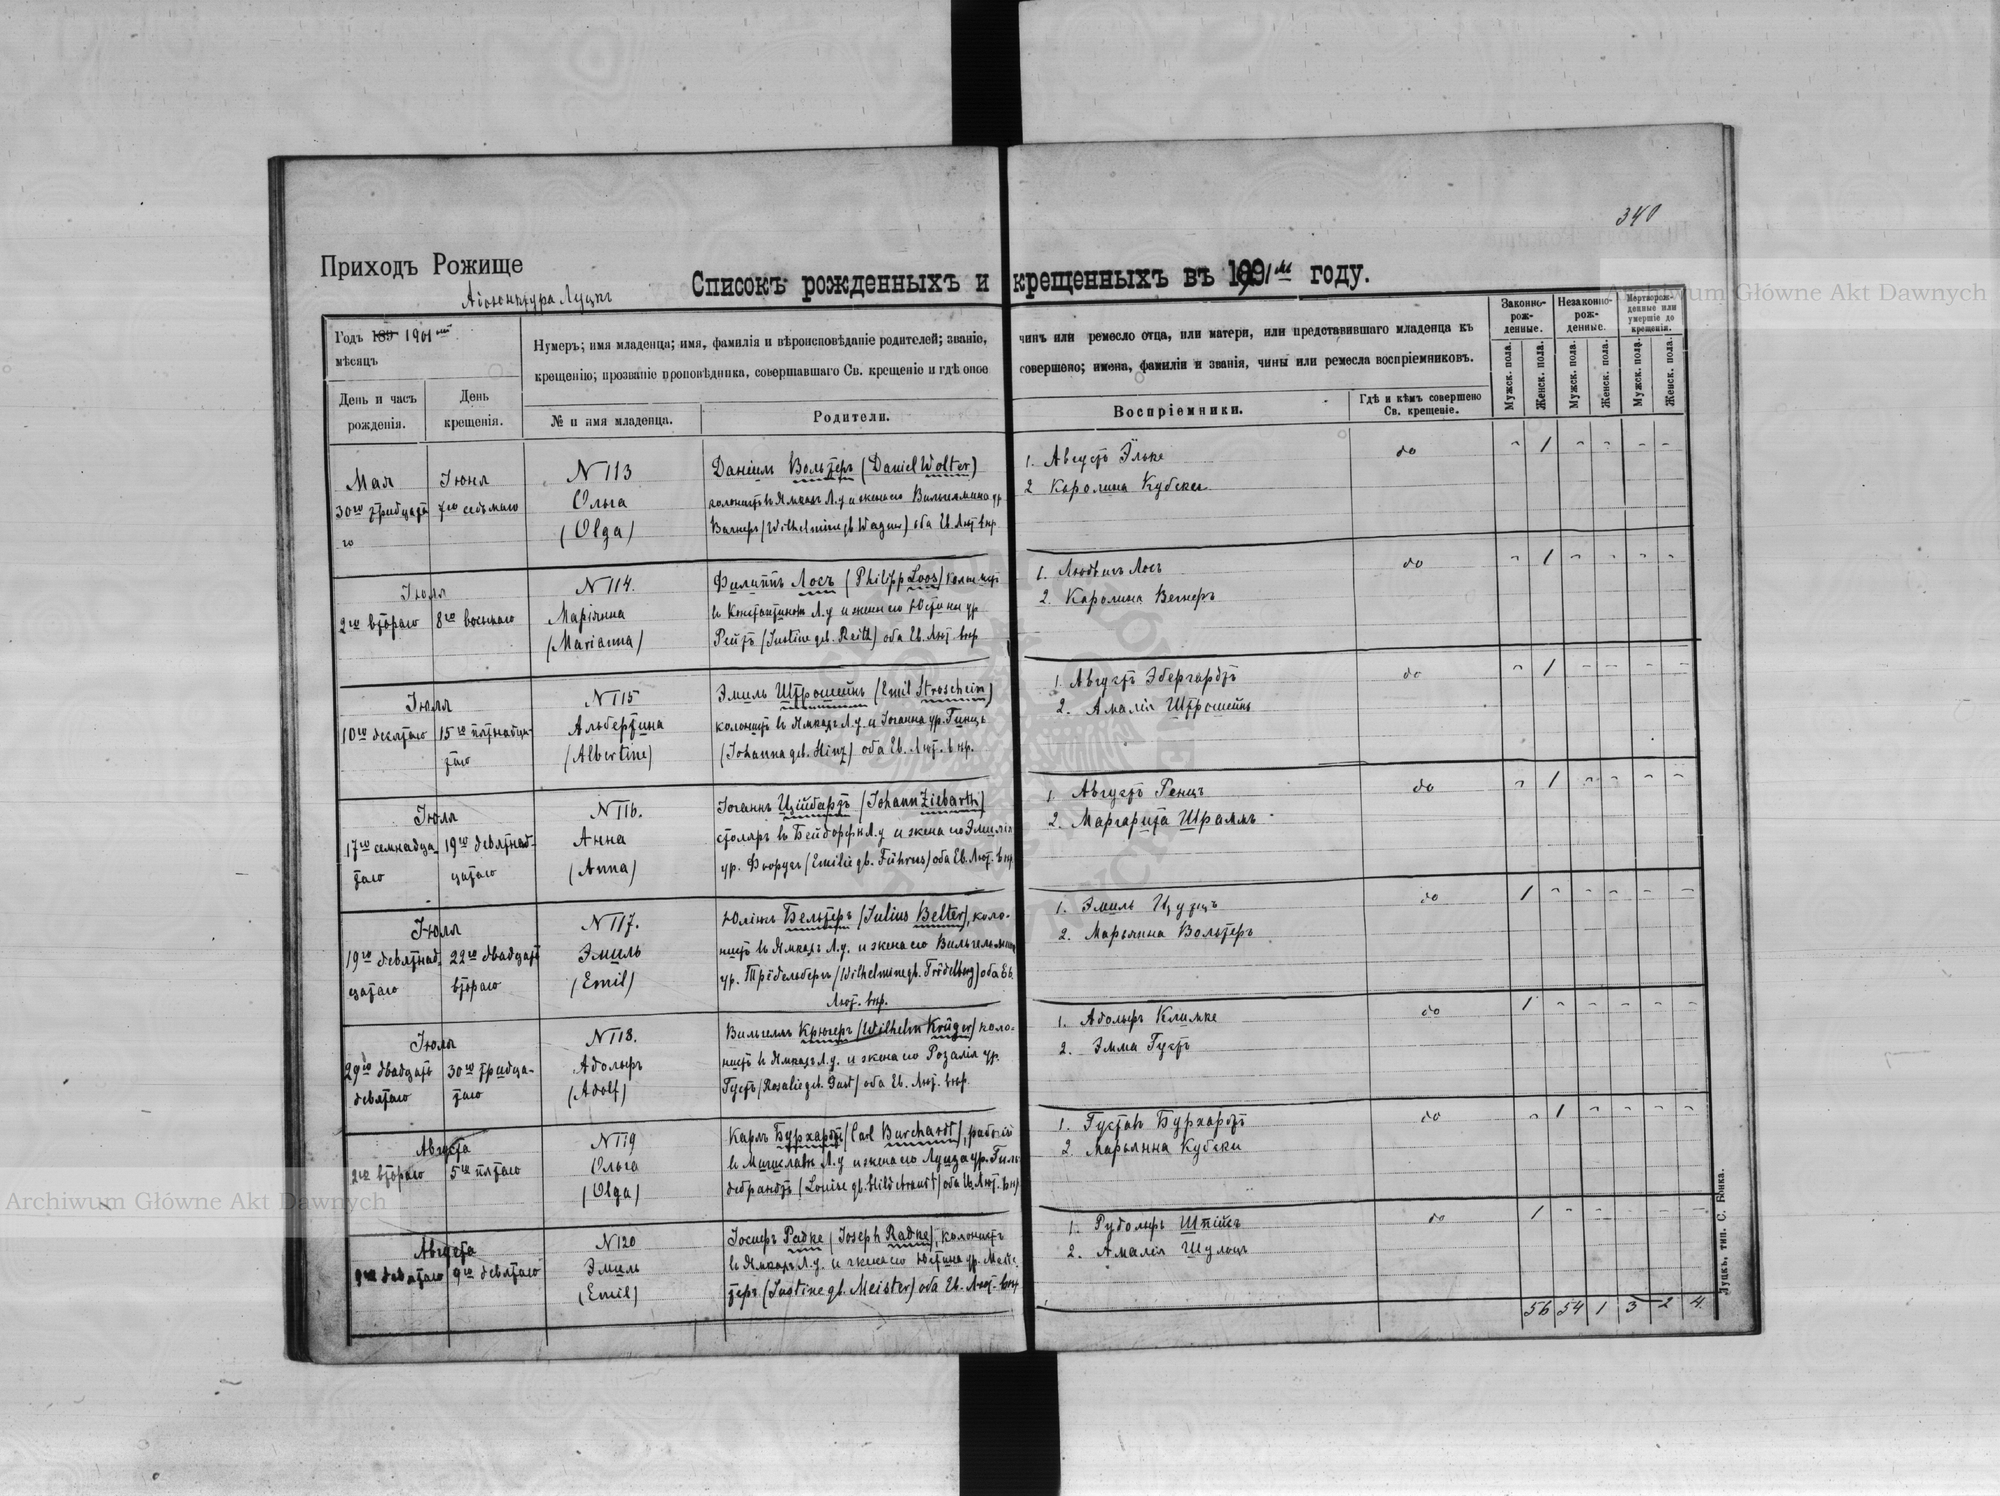 340
Приходъ Рожище
Адъюнктура Луцкъ
Списокъ рожденныхъ и крещенныхъ въ 1901 му году.
Годъ 189 1901 мѣсяцъ
День и часъ рожденія.
День крещенія.
Нумеръ; имя младенца; имя, фамилія и вѣроисповѣданіе родителей; званіе, чинъ или ремесло отца, или матери, или представившаго младенца къ
крещенію; прозваніе проповѣдника, совершавшаго Св. крещеніе и гдѣ оное совершено; имена, фамиліи и званія, чины или ремесла воспріемниковъ.
№ и имя младенца.
Родители.
Воспріемники.
Гдѣ и кѣмъ совершено Св. крещеніе.
Законно-рож-денные.
Незаконно-рож-денные.
Мертворож-денные или умершіе до крещенія.
Мужск. пола.
Женск. пола.
Мужск. пола.
Женск. пола.
Мужск. пола.
Женск. пола.
Мая
30го тридцата
го
Іюня
7го седьмаго
N 113
Ольга
(Olga)
Даніилъ Вольтеръ (Daniel Wolter)
колонистъ въ Ямкахъ Л.у и жена его Вильгельмина ур
Вагнеръ (Wilhelmine gb Wagner) оба Ев. Лют. вѣр.
1. Августъ Эльке
2 Каролина Кубски
do
1
Іюля
2го втораго
8го восьмаго
N 114.
Маріянна
(Marianna)
Филиппъ Лосъ (Philipp Loos) колонистъ
въ Константинов Л.у и жена его Юстина ур
Рейтъ (Justine geb. Reith) оба Ев. Лют. вѣр
1. Людвигъ Лосъ
2. Каролина Вегнеръ
do
1
Іюля
10го десятаго
15го пятнадца-
таго
N 115
Альбертина
(Albertine)
Эмиль Штрошейнъ (Emil Stroschein)
колонистъ въ Ямкахъ Л.у и Іоганна ур. Гинцъ
(Johanna geb. Hinz) оба Ев. Лют. вѣр.
1. Августъ Эбергардтъ
2. Амалія Штрошейнъ
do
1
Іюля
17го семнадца-
таго
19го девятнад-
цатаго
N 116.
Анна
(Anna)
Іоганнъ Ційбартъ (Johann Ziebarth)
столяръ въ Бейдорфи Л.у и жена его Эмилія
ур. Фюрусъ (Emilie gb. Führus) оба Ев. Лют. вѣр
1. Августъ Генцъ
2. Маргарита Шраммъ
do
1
Іюля
19го девятнад-
цатаго
22го двадцать
втораго
N 117.
Эмиль
(Emil)
Юліусъ Бельтеръ (Julius Belter), коло-
нистъ въ Ямкахъ Л.у. и жена его Вильгельмина
ур. Трёдельбергъ (Wilhelmine gb. Trödelberg) оба Ев.
Лют. вѣр.
1. Эмиль Цузцъ
2. Марьянна Вольтеръ
do
1
Іюля
29го двадцать
девятаго
30го тридца-
таго
N 118.
Адольфъ
(Adolf)
Вильгелмъ Крюгеръ (Wilhelm Krüger) коло-
нистъ въ Ямкахъ Л.у. и жена его Розалія ур.
Густъ (Rosalie geb. Gust) оба Ев. Лют. вѣр.
1. Адольфъ Климке
2. Эмма Густъ
do
1
Августа
2го втораго
5го пятаго
N 119
Ольга
(Olga)
Карлъ Бурхардтъ (Carl Burchardt), рабочій
въ Мичиславкѣ Л.у и жена его Луиза ур. Гиль-
дебрандтъ (Louise gb. Hildebrandt) оба Ев. Лют. вѣр
1. Густавъ Бурхардтъ
2. Марьянна Кубски
do
1
Августа
9го девятаго
9го девятаго
N 120
Эмиль
(Emil)
Іосифъ Радке (Joseph Radke), колонистъ
въ Ямкахъ Л.у. и жена его Юстина ур. Мейс-
теръ (Justine gb. Meister) оба Ев. Лют. вѣр
1. Рудольфъ Шпійсъ
2. Амалія Шульцъ
do
1
56 54 1 3 2 4
Луцкъ, тип. С. Бонка.
Archiwum Główne Akt Dawnych
Archiwum Główne Akt Dawnych